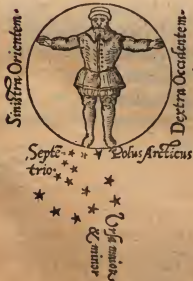 Sinistra Orientem.
Dextra Occidentem.
Septe-
trio.
Polus Arcticus
Ursa maior
& minor